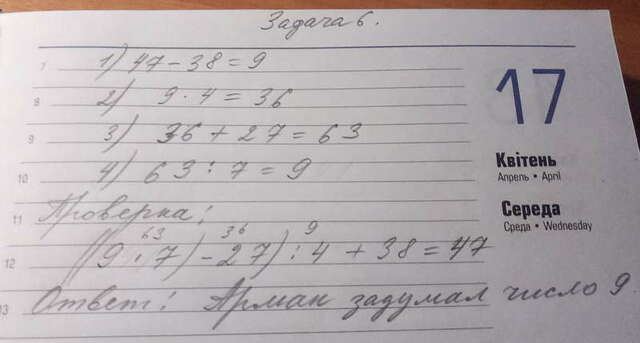 Задача 6.
7 1) 47 - 38 = 9
8 2) 9 · 4 = 36
9 3) 36 + 27 = 63
10 4) 63 : 7 = 9
11 Проверка:
63 36 9
12 ((9 · 7) - 27) : 4 + 38 = 47
13 Ответ: Арман задумал число 9
17
Квітень
Апрель • April
Середа
Среда • Wednesday